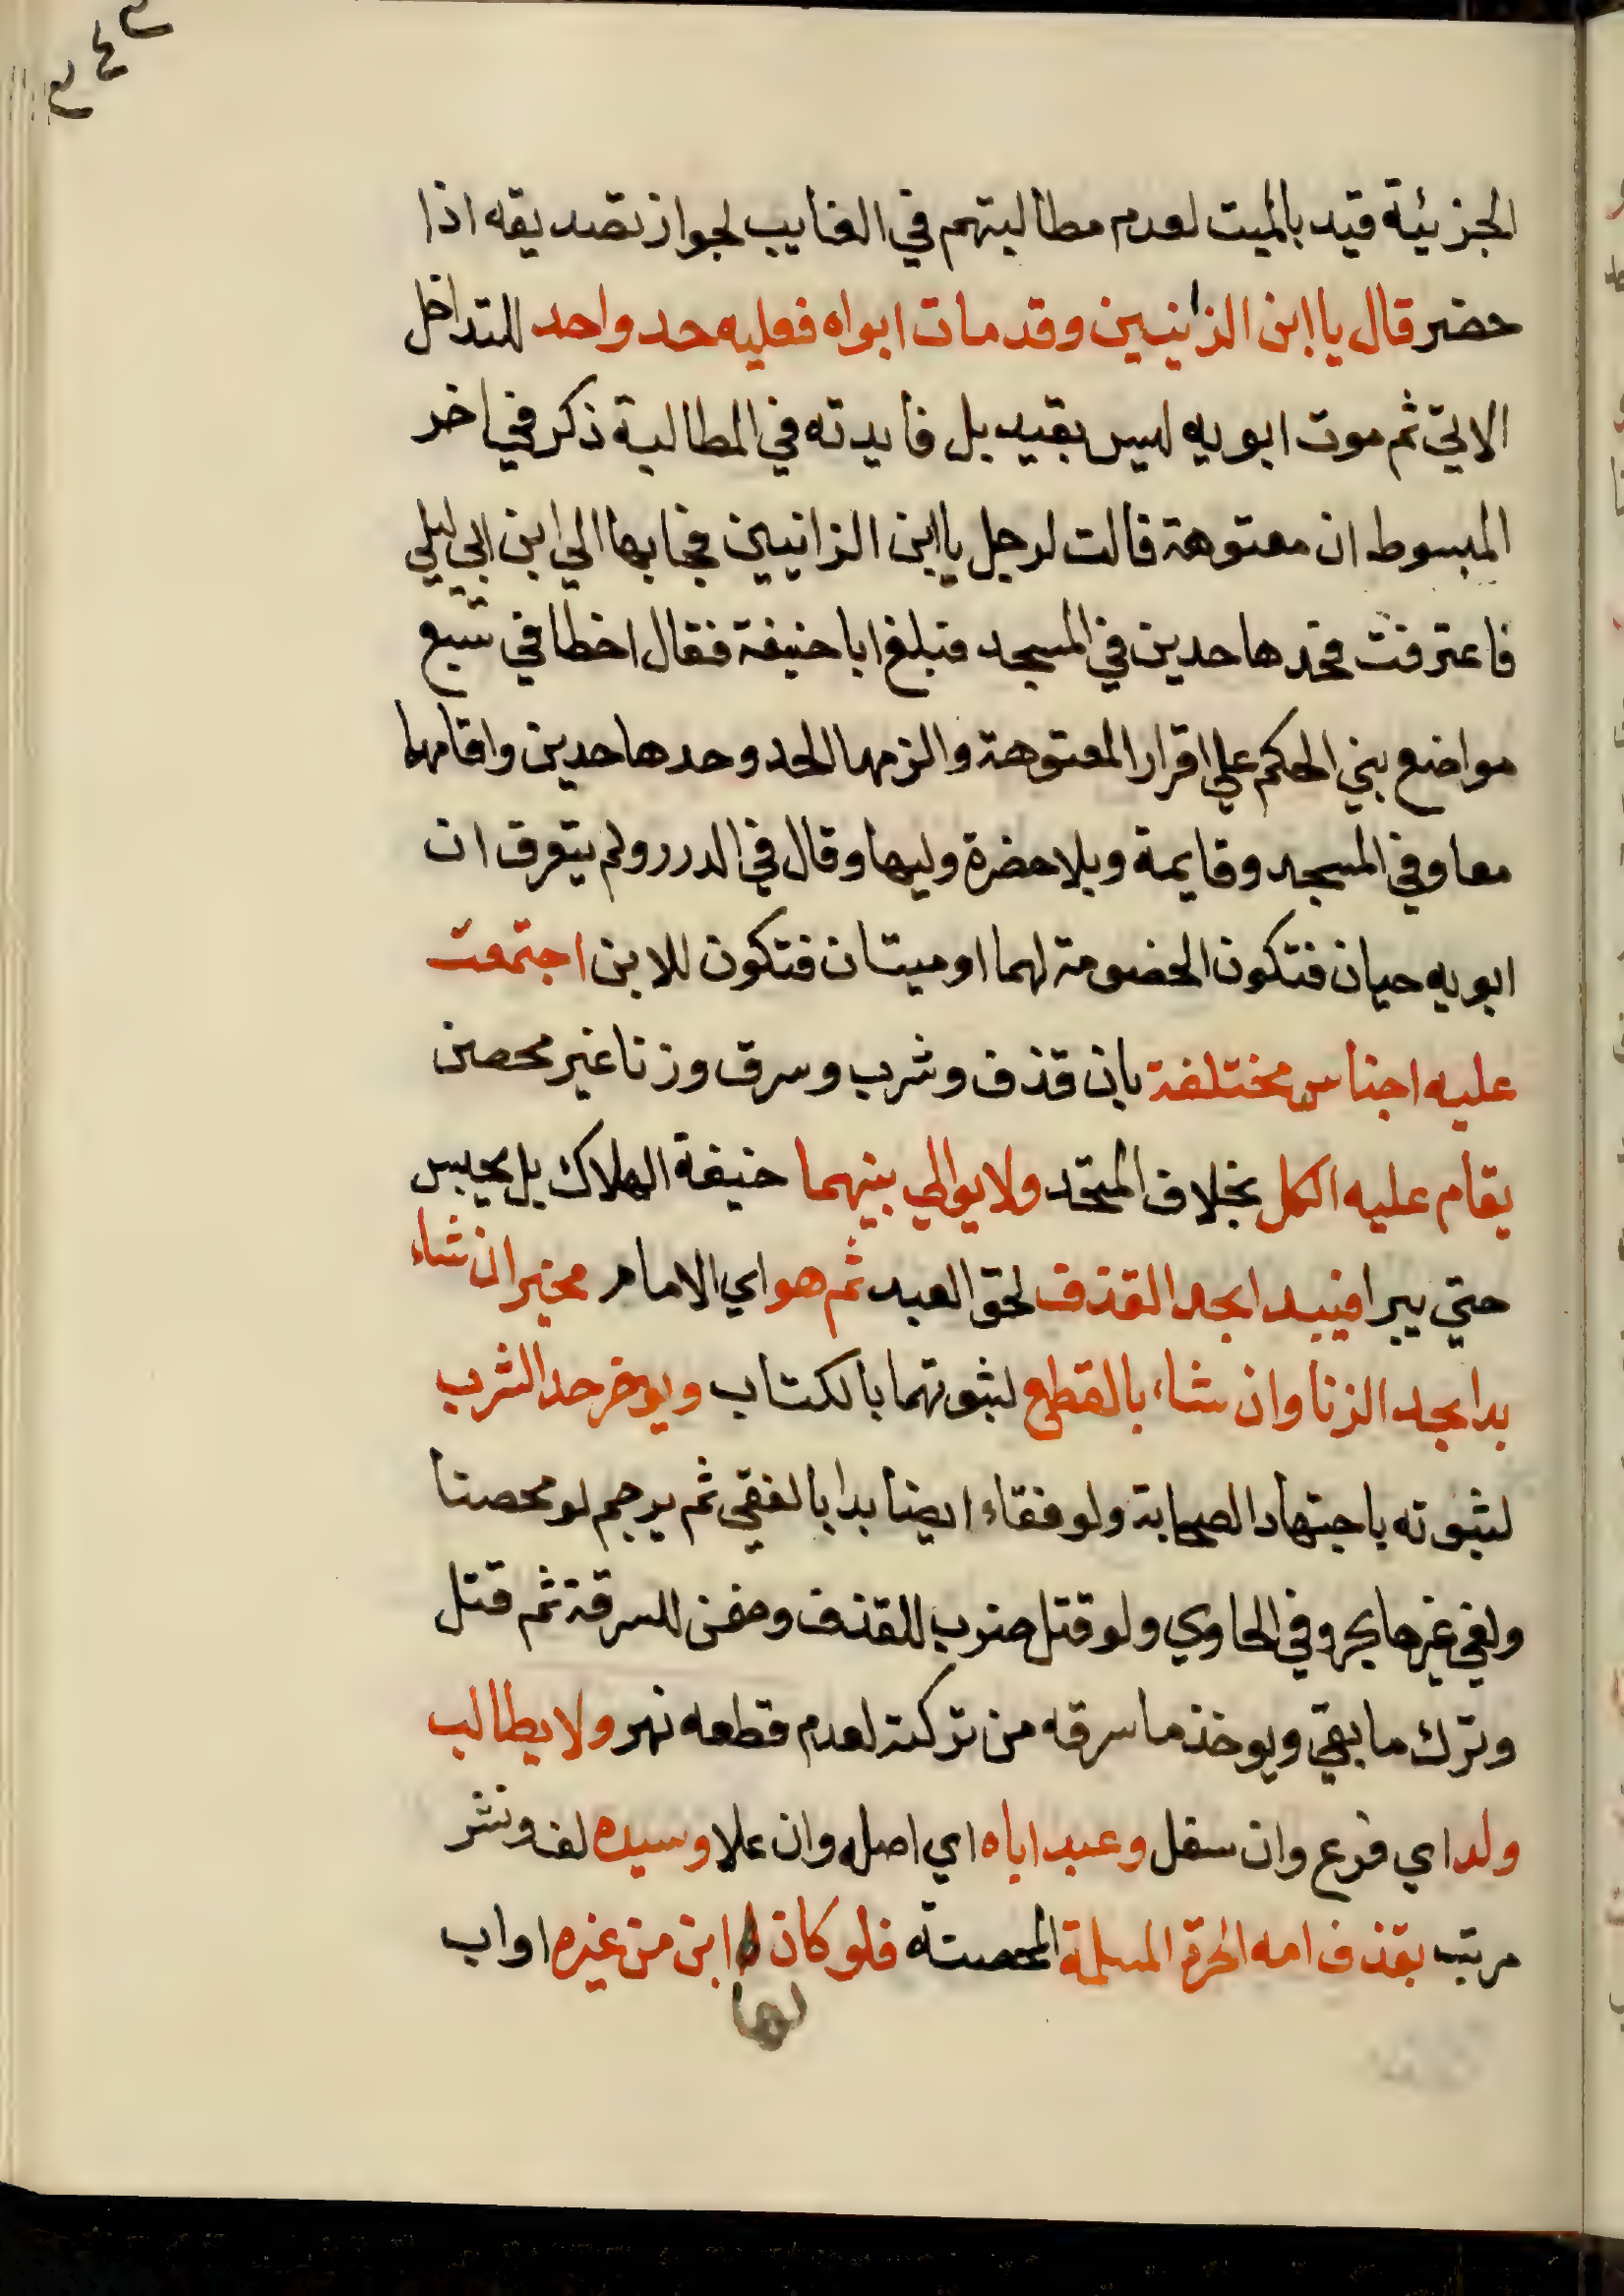 الجزيئة قيد بالميت لعدم مطالبتهم في الغايب لجواز تصديقه اذا
حضر قال يا ابن الزانيين وقد مات ابواه فعليه حد واحد للتداخل
الاتي ثم موت ابويه ليس بقيد بل فايدته في المطالبة ذكر في اخر
المبسوط ان معتوهة قالت لرجل يا ابن الزانيين فجابها الي ابن ابي ليلي
فاعترفت فحدها حدين في المسجد فبلغ ابا حنيفة فقال اخطا في سبع
مواضع بني الحكم علي اقرار المعتوهة والزمها الحد وحدها حدين واقامهما
معا وفي المسجد وقايمة وبلا حضرة وليها وقال في الدرر ولم يتعرف ان
ابويه حيان فتكون الخصومة لهما او ميتان فتكون للابن اجتمعت
عليه اجناس مختلفة بان قذف وشرب وسرق وزنا غير محصن
يقام عليه الكل بخلاف المتحد ولا يوالي بينهما خيفة الهلاك بل يحبس
حتي يبرا فيبدا بحد القذف لحق العبد ثم هو اي الامام مخير ان شاء
بدا بحد الزنا وان شاء بالقطع لثبوتهما بالكتاب ويوخر حد الشرب
لثبوته باجتهاد الصحابة ولو فقاء ايضا بدا بالفقي ثم يرجم لو محصنا
ولغي غيرها بحر وفي الحاوي ولو قتل ضرب للقذف وضمن للسرقة ثم قتل
وترك ما بقي ويوخذ ما سرقه من تركته لعدم قطعه نهر ولا يطالب
ولد اي فرع وان سفل وعبد اباه اي اصله وان علا وسيده لف ونشر
مرتب بقذف امه الحرة المسلمة المحصنة فلو كان لها ابن من غيره او اب